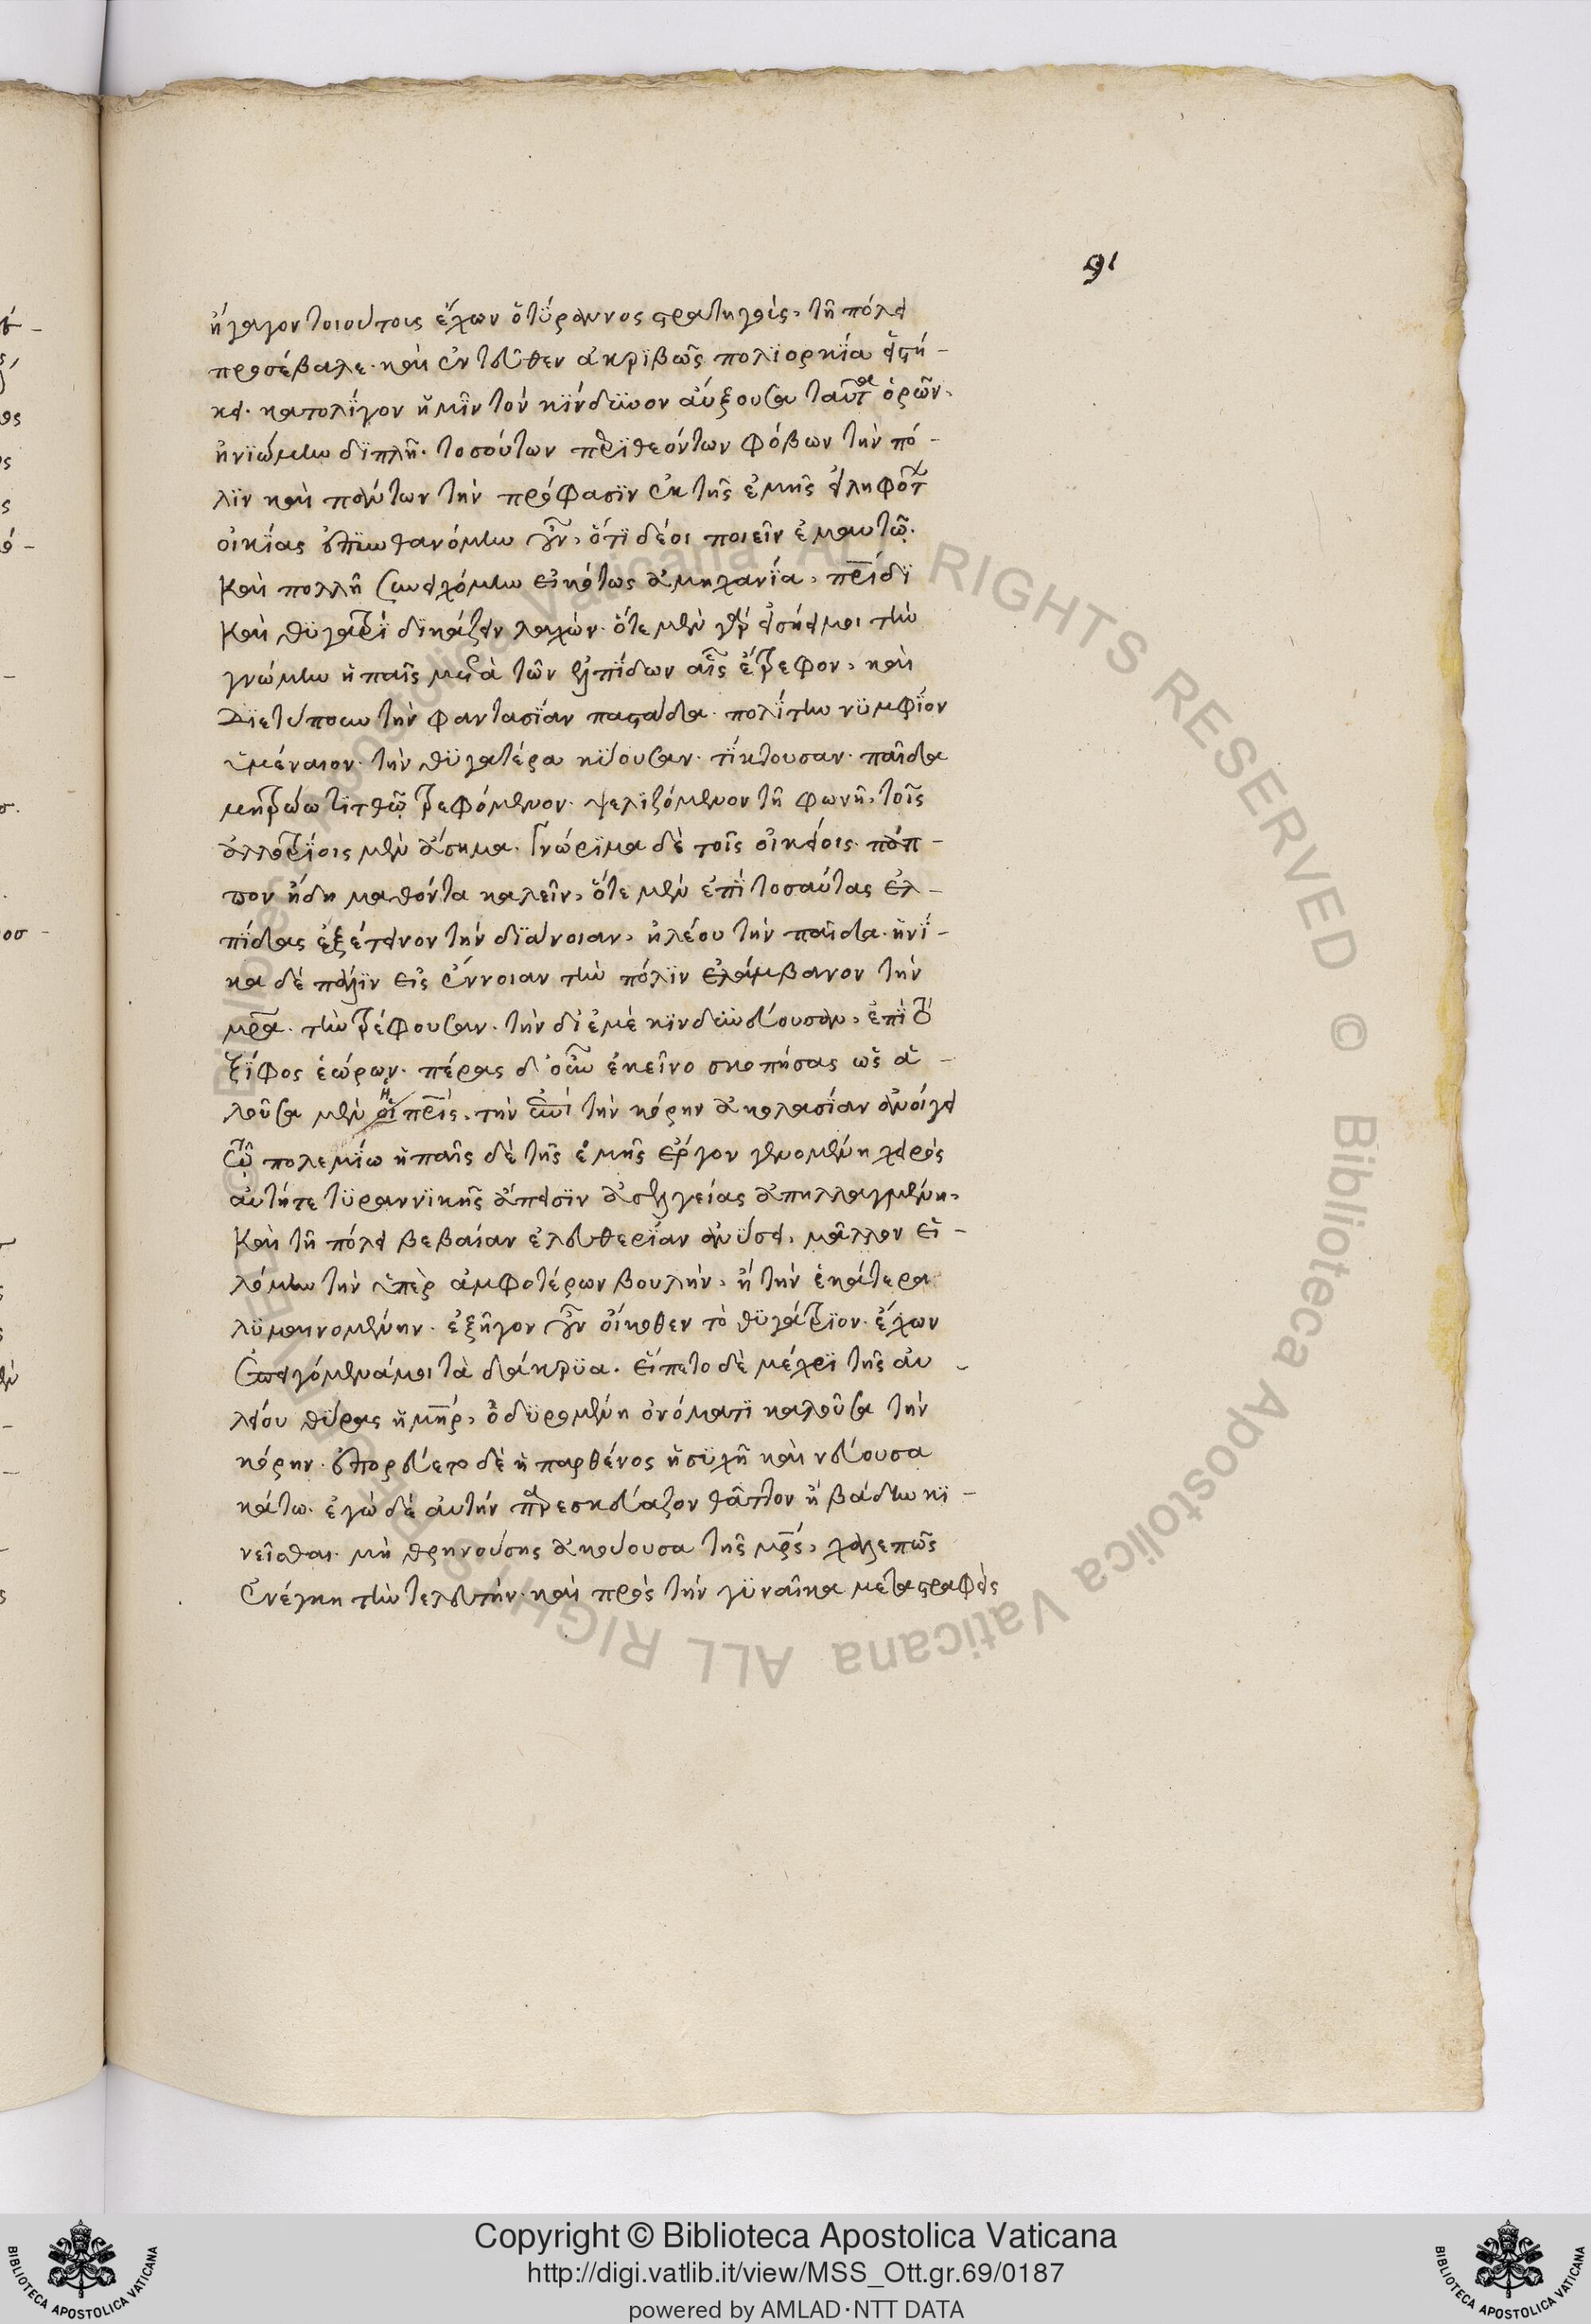 91
ἤγαγον τοιούτους ἔχων ὁ τύραννος στρατηγοὺς, τῆ πόλει
προσέβαλε. καὶ ἐντεῦθεν ἀκριβῶς πολϊορκία εἱστή-
κει. κατολίγον ἡμῖν τὸν κίνδυνον αὔξουσα ταῦτα ὁρῶν.
ἠνιώμην διπλῆ. τοσούτων περιθεόντων φόβων τὴν πό-
λιν καὶ πάντων τὴν πρόφασιν ἐκ τῆς ἐμῆς εἰληφότων
οἰκίας ἐπυνθανόμην οὖν, ὅτι δέοι ποιεῖν ἐμαυτῶ.
καὶ πολλῆ συνειχόμην εἰκότως ἀμηχανία, πατρίδι
καὶ θυγατρὶ δικάζειν λαχών. ὅτε μὲν γὰρ εἰσήει μοι τὴν
γνώμην ἡ παῖς μετὰ τῶν ἐλπίδων αἷς ἔτρεφον, καὶ
διετύπουν τὴν φαντασίαν παστάδα. πολίτην νυμφίον
ὑμέναιον. τὴν θυγατέρα κύουσαν. τίκτουσαν. παῖδα
μητρώω τιτθῶ τρεφόμενον. ψελιζόμενον τῆ φωνῆ, τοῖς
ἀλλοτρίοις μὲν ἄσημα. γνώριμα δὲ τοῖς οἰκείοις. πάπ-
πον ἤδη μαθόντα καλεῖν, ὅτε μὲν ἐπὶ τοσαύτας ἐλ-
πίδας ἐξέτεινον τὴν διάνοιαν, ἠλέουν τὴν παῖδα. ἡνί-
κα δὲ πάλιν εἰς ἔννοιαν τὴν πόλιν ἐλάμβανον τὴν
μητέρα. τὴν τρέφουσαν. τὴν δι' ἐμὲ κινδυνεύουσαν, ἐπὶ τὸ
ξίφος ἑώρων. πέρας δ' οὖν ἐκεῖνο σκοπήσας ὡς ἁ-
λοῦσα μὲν ἡ πατρὶς, τὴν ἐπὶ τὴν κόρην ἀκολασίαν ἀνοίγει
τῶ πολεμίω ἡ παῖς δὲ τῆς ἐμῆς ἔργον γενομένη χειρὸς
αὐτήτε τυραννικῆς ἄπεισιν ἀσελγείας ἀπηλλαγμένη,
καὶ τῆ πόλει βεβαίαν ἐλευθερίαν ἀνύσει, μᾶλλον εἱ-
λόμην τὴν ὑπὲρ ἀμφοτέρων βουλὴν, ἢ τὴν ἑκάτερα
λυμαινομένην. ἐξῆγον οὖν οἴκοθεν τὸ θυγάτριον. ἔχων
ἐπειγόμενά μοι τὰ δάκρυα. εἵπετο δὲ μέχρι τῆς αὐ-
λείου θύρας ἡ μήτηρ, ὀδυρομένη ὀνόματι καλοῦσα τὴν
κόρην. ἐπορεύετο δὲ ἡ παρθένος ἡσυχῆ καὶ νεύουσα
κάτω. ἐγὼ δὲ αὐτὴν παρεσκεύαζον θᾶττον ἢ βάδην κι-
νεῖσθαι. μὴ θρηνούσης ἀκούουσα τῆς μητρός, χαλεπῶς
ἐνέγκη τὴν τελευτήν. καὶ πρὸς τὴν γυναῖκα μεταστραφεὶς
Copyright © Biblioteca Apostolica Vaticana
http://digi.vatlib.it/view/MSS_Ott.gr.69/0187
powered by AMLAD·NTT DATA